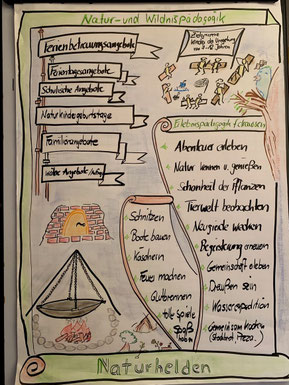 Natur- und Wildnispädagogik
Ferienbetreuungsangebote
Ferientagesangebote
Schulische Angebote
Naturkindergeburtstage
Familienangebote
weitere Angebote
Zielgruppe
Kinder der Umgebung
von 7-12 Jahren
Erlebnispädagogik + draussen
Abenteuer erleben
Natur kennen u. genießen
Schönheit der Pflanzen
Tierwelt beobachten
Neugierde wecken
Begeisterung erneuern
Gemeinschaft erleben
Draußen sein
Wasserexpedition
Gemeinsam kochen
Stockbrot Pizza
Schnitzen
Boote bauen
Käschern
Feuer machen
Glutbrennen
tolle Spiele
Spaß
haben
Naturhelden